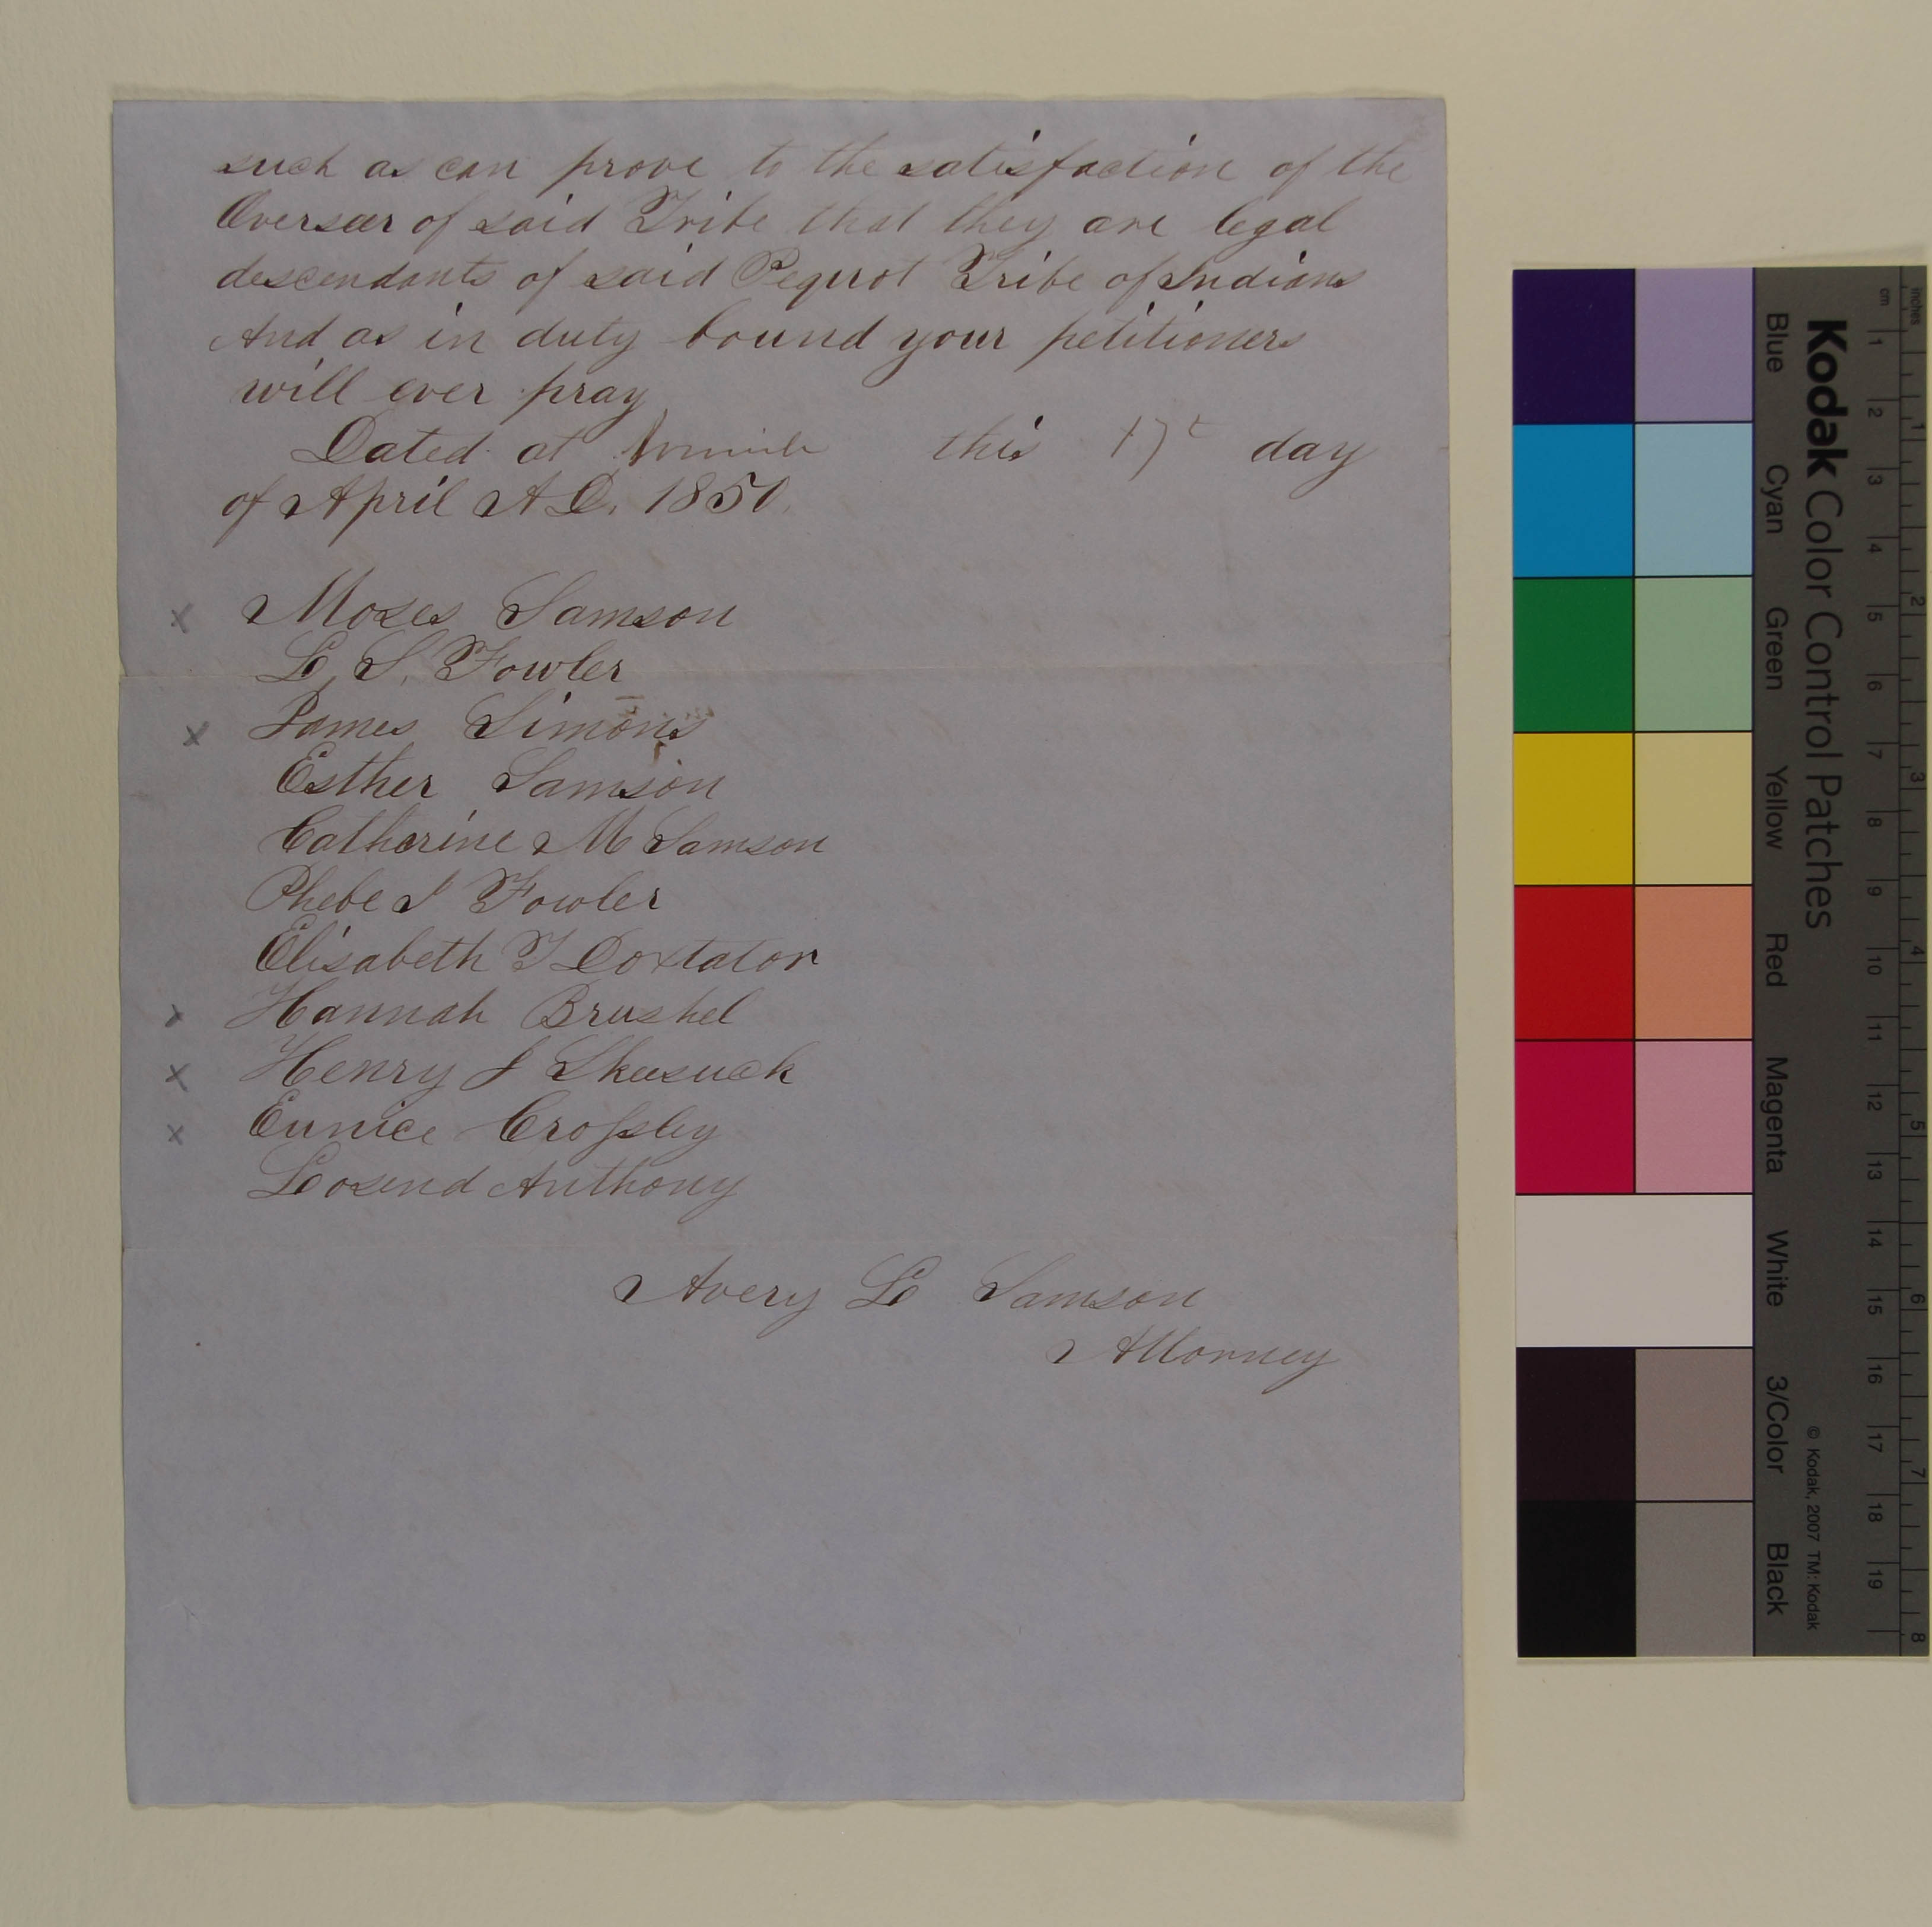 such as can prove to the satisfaction of the
Overseer of said Tribe that they are legal
descendants of said Pequot Tribe of Indians
And as in duty bound your petitioners
will ever pray
Dated at this 17t day
of April A.D. 1850.
x Moses Samson
L. S. Fowler
x James Simons
Esther Samson
Catherine M Samson
Phebe J Fowler
Elisabeth T Doxtator
x Hannah Brushel
x Henry J Skeesuck
x Eunice Crossley
Losend Anthony
Avery L Samson
Attorney
Kodak Color Control Patches
© Kodak, 2007 TM: Kodak
Blue Cyan Green Yellow Red Magenta White 3/Color Black
cm 1 2 3 4 5 6 7 8 9 10 11 12 13 14 15 16 17 18 19
inches 1 2 3 4 5 6 7 8